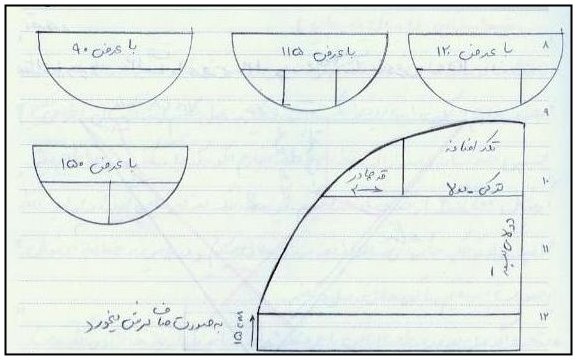 با عرض ۱۲۰
با عرض ۱۱۵
با عرض ۹۰
با عرض ۱۵۰
تکه اضافه
دولا
قد چادر
دولای بسته
15cm
به صورت صاف برش بخورد
۸
۹
۱۰
۱۱
۱۲